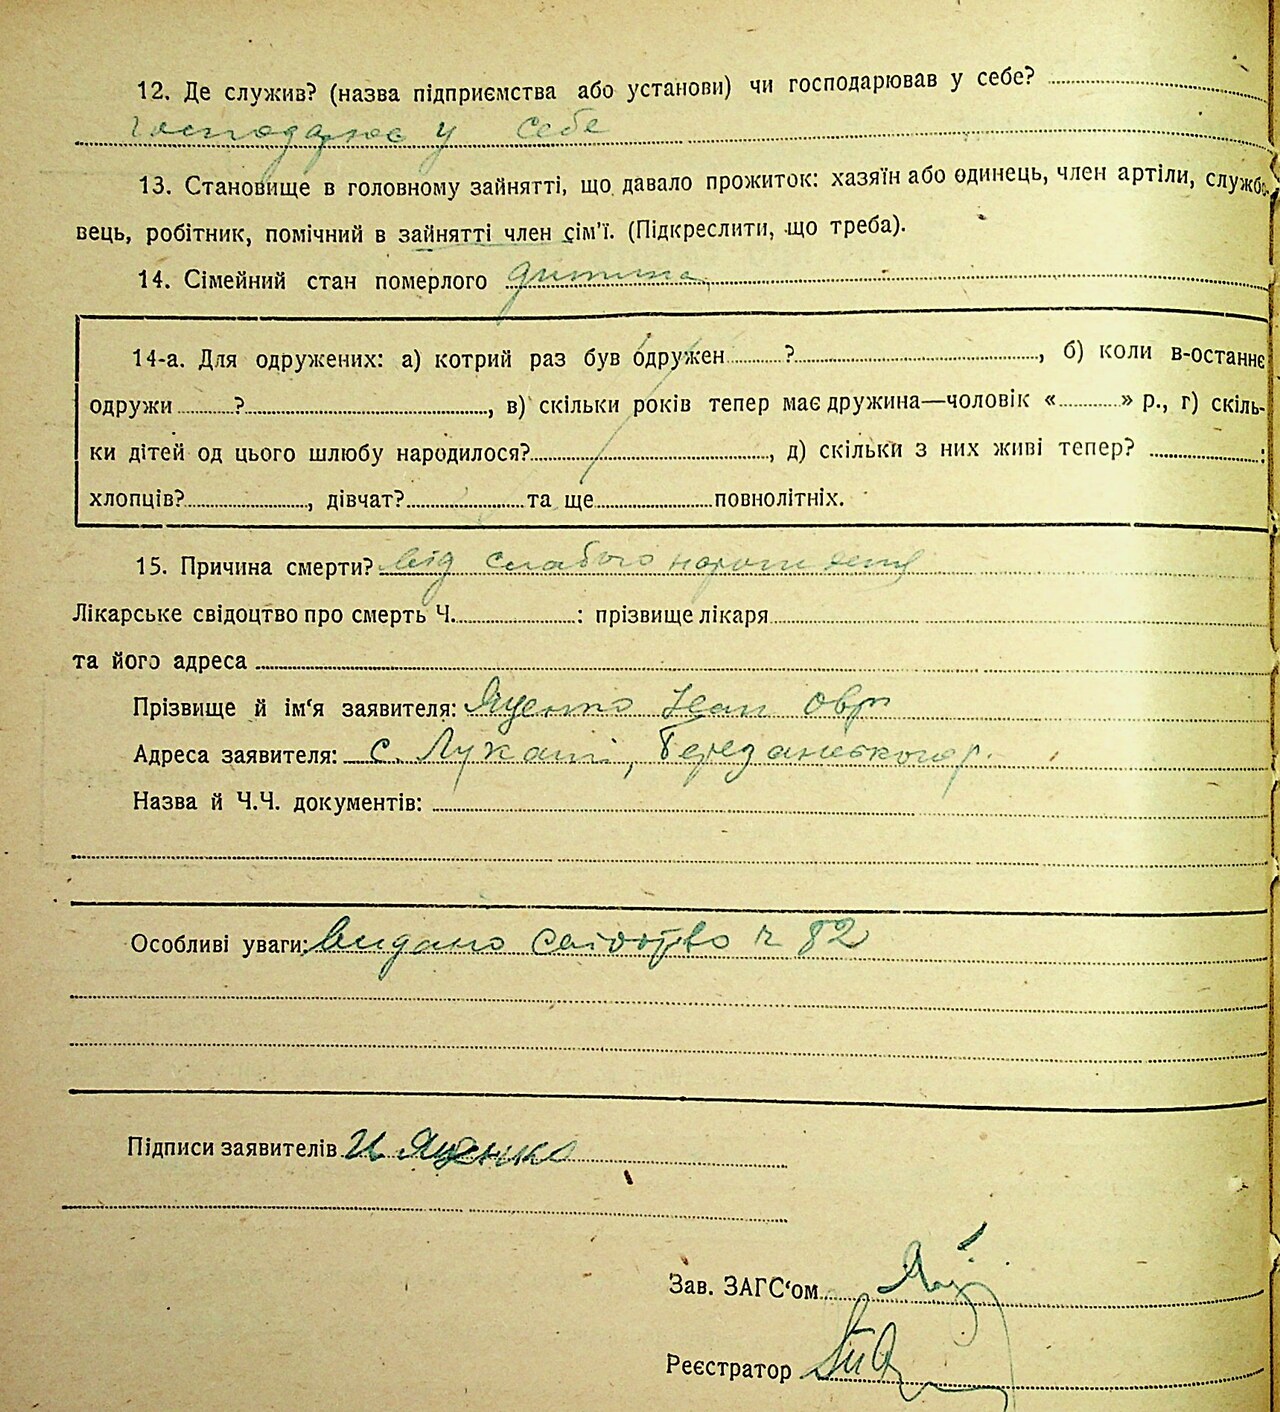 12. Де служив? (назва підприємства або установи) чи господарював у себе?
господарює у себе
13. Становище в головному зайнятті, що давало прожиток: хазяїн або одинець, член артіли, службо-
вець, робітник, помічний в зайнятті член сім'ї. (Підкреслити, що треба).
14. Сімейний стан померлого дитина
14-а. Для одружених: а) котрий раз був одружен ? , б) коли в-останнє
одружи ? , в) скільки років тепер має дружина—чоловік « » р., г) скіль-
ки дітей од цього шлюбу народилося? , д) скільки з них живі тепер? ;
хлопців? , дівчат? та ще повнолітніх.
15. Причина смерти? від слабого народження
Лікарське свідоцтво про смерть Ч. : прізвище лікаря
та його адреса
Прізвище й ім'я заявителя: Яценко Іван Овр
Адреса заявителя: с. Лукаші, Березанського р.
Назва й Ч.Ч. документів:
Особливі уваги: Видано свідоцтво ч 82
Підписи заявителів И Яценко
Зав. ЗАГС'ом
Реєстратор